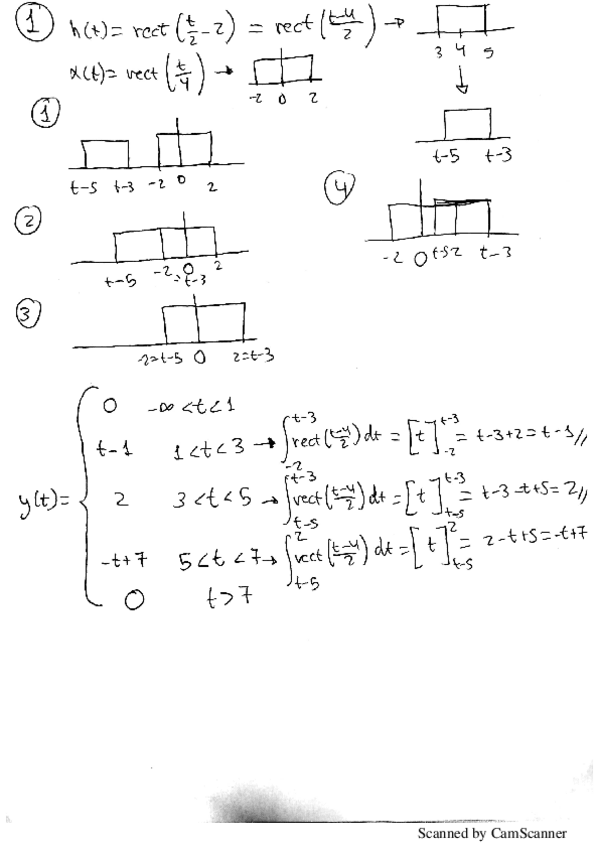 ① h(t) = rect(t/2 - 2) = rect((t-4)/2) →
3 4 5
x(t) = rect(t/4) → -2 0 2
①
t-5 t-3 -2 0 2
t-5 t-3
④
-2 0 t-5 2 t-3
②
t-5 -2 = t-3 0 2
③
-2=t-5 0 2=t-3
y(t) =
0 -∞<t<1
t-1 1<t<3 → ∫_{-2}^{t-3} rect((t-4)/2) dt = [t]_{-2}^{t-3} = t-3+2 = t-1//
2 3<t<5 → ∫_{t-5}^{t-3} rect((t-4)/2) dt = [t]_{t-5}^{t-3} = t-3-t+5 = 2//
-t+7 5<t<7 → ∫_{t-5}^{2} rect((t-4)/2) dt = [t]_{t-5}^{2} = 2-t+5 = -t+7
0 t>7
Scanned by CamScanner